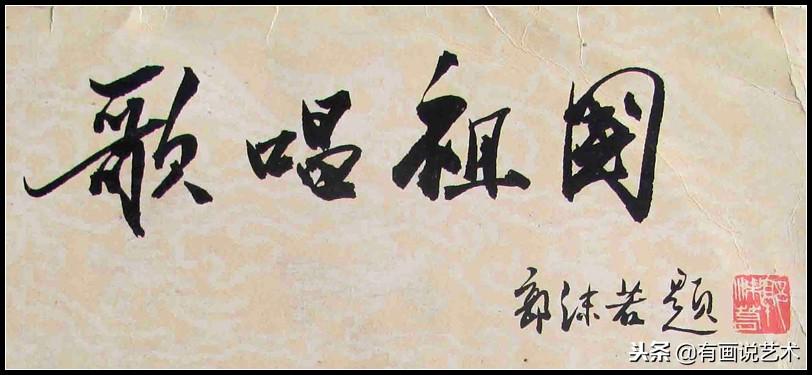 歌唱祖国
郭沫若题
郭沫若
头条 @有画说艺术